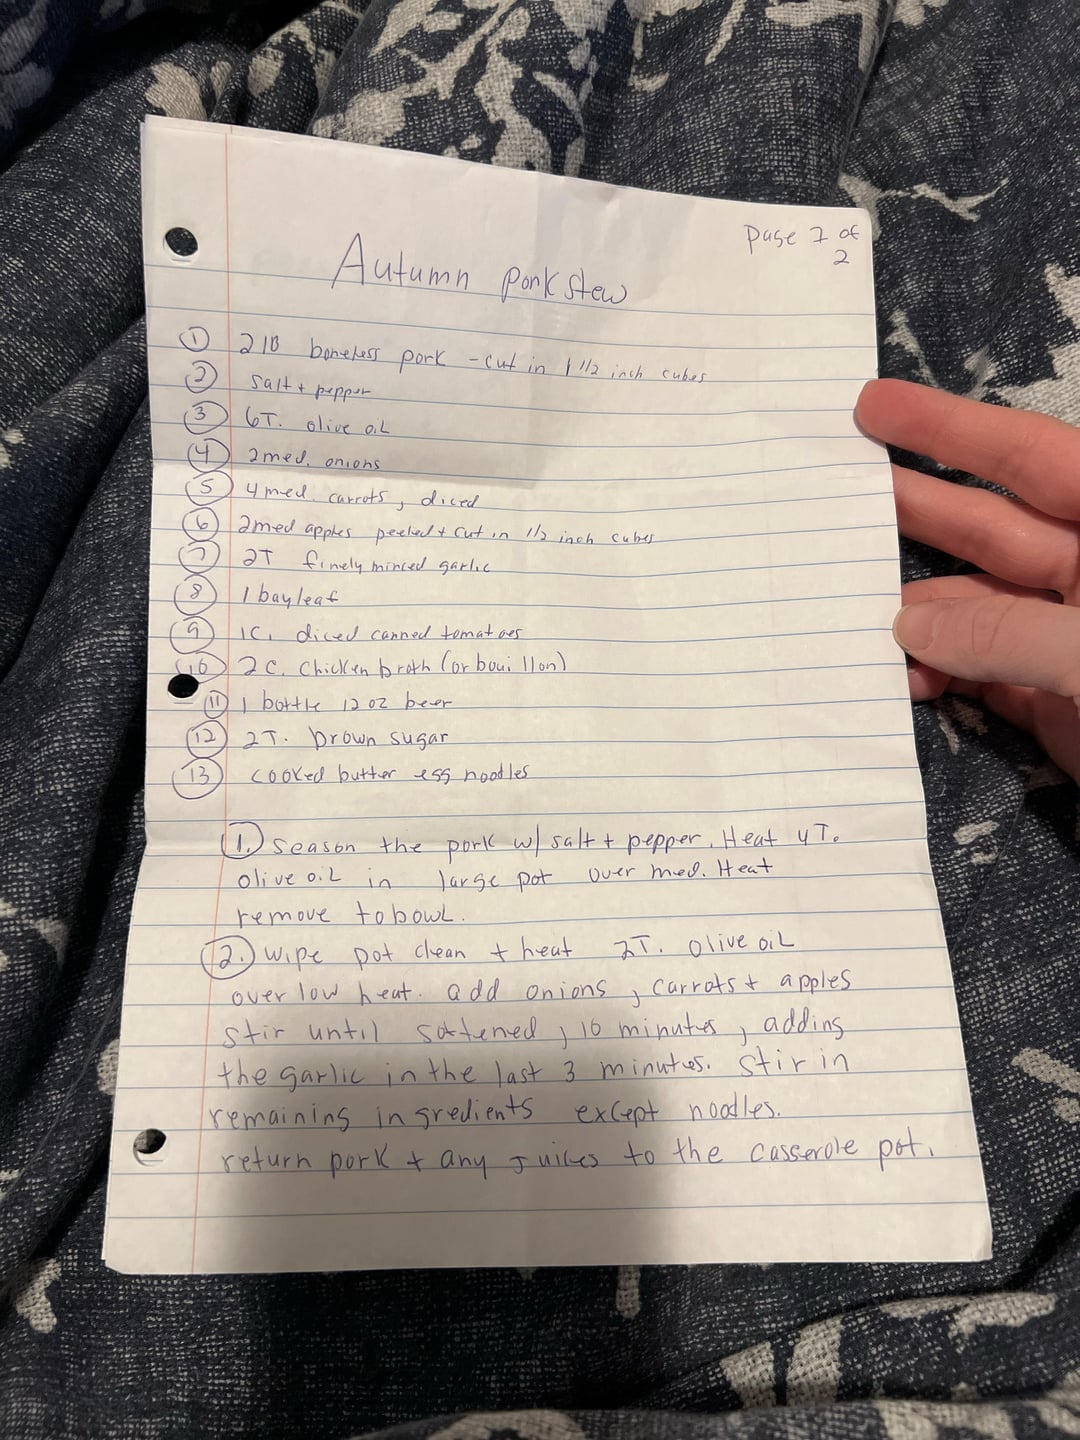 Page 1 of
2
Autumn pork stew
① 2 lB boneless pork - cut in 1 1/2 inch cubes
② salt + pepper
③ 6T. olive oil
④ 2 med. onions
⑤ 4 med. carrots, diced
⑥ 2 med apples peeled + cut in 1/2 inch cubes
⑦ 2T finely minced garlic
⑧ 1 bay leaf
⑨ 1C. diced canned tomatoes
⑩ 2 C. Chicken broth (or bouillon)
⑪ 1 bottle 12 oz beer
⑫ 2T. brown sugar
⑬ cooked butter egg noodles
1. Season the pork w/ salt + pepper. Heat 4T.
olive oil in large pot over med. Heat
remove to bowl.
2. Wipe pot clean + heat 2T. olive oil
over low heat. add onions, carrots + apples
stir until softened, 10 minutes, adding
the garlic in the last 3 minutes. Stir in
remaining ingredients except noodles.
return pork + any juices to the casserole pot.